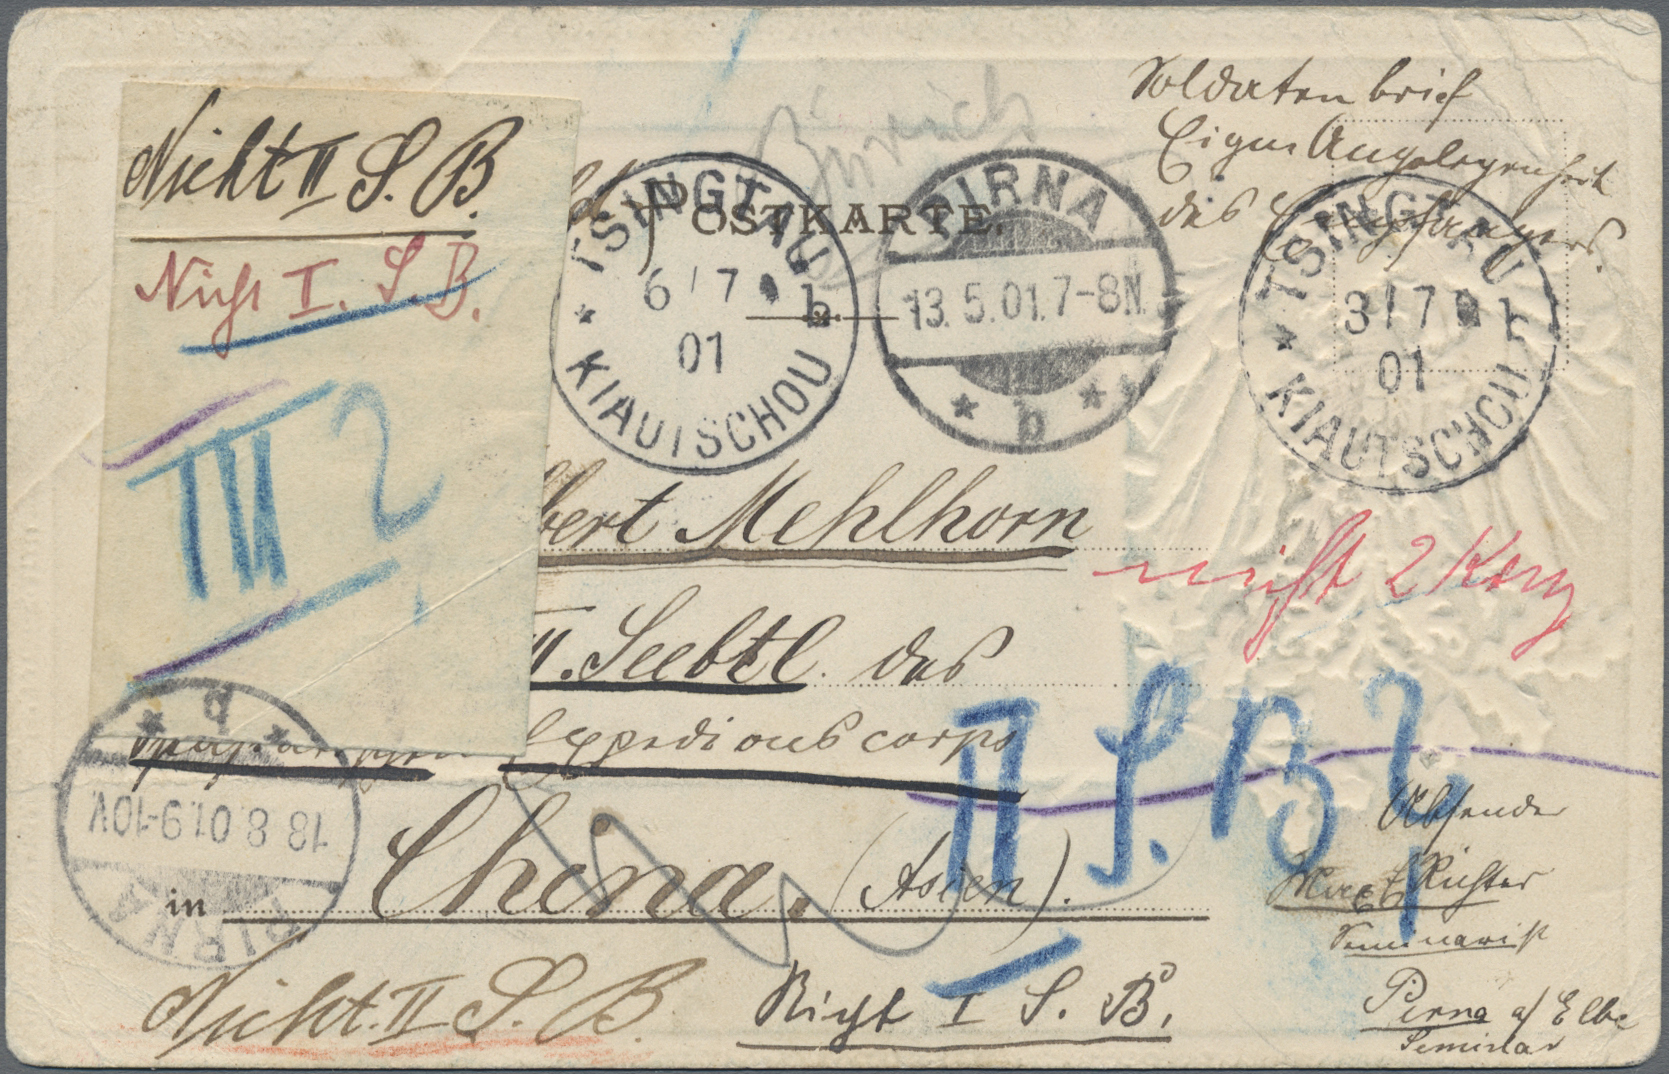 Soldatenbrief
Eigene Angelegenheit
des Empfängers.
Nicht II S. B.
Nicht I. S. B.
III 2
Zurück
POSTKARTE.
TSINGTAU
6/7 01 b
KIAUTSCHOU
PIRNA
13.5.01.7-8N.
* b *
TSINGTAU
3/7 01 b
KIAUTSCHOU
bert Mehlhorn
nicht 2 Komp
II. Seebtl. des
Expedionscorps
II S. B ?
in China. (Asien).
PIRNA
18.8.01.9-10V.
* b *
Absender
Max Richter
Seminarist
Pirna a/ Elbe
Seminar
Nicht. II S. B.
Nicht I S. B.